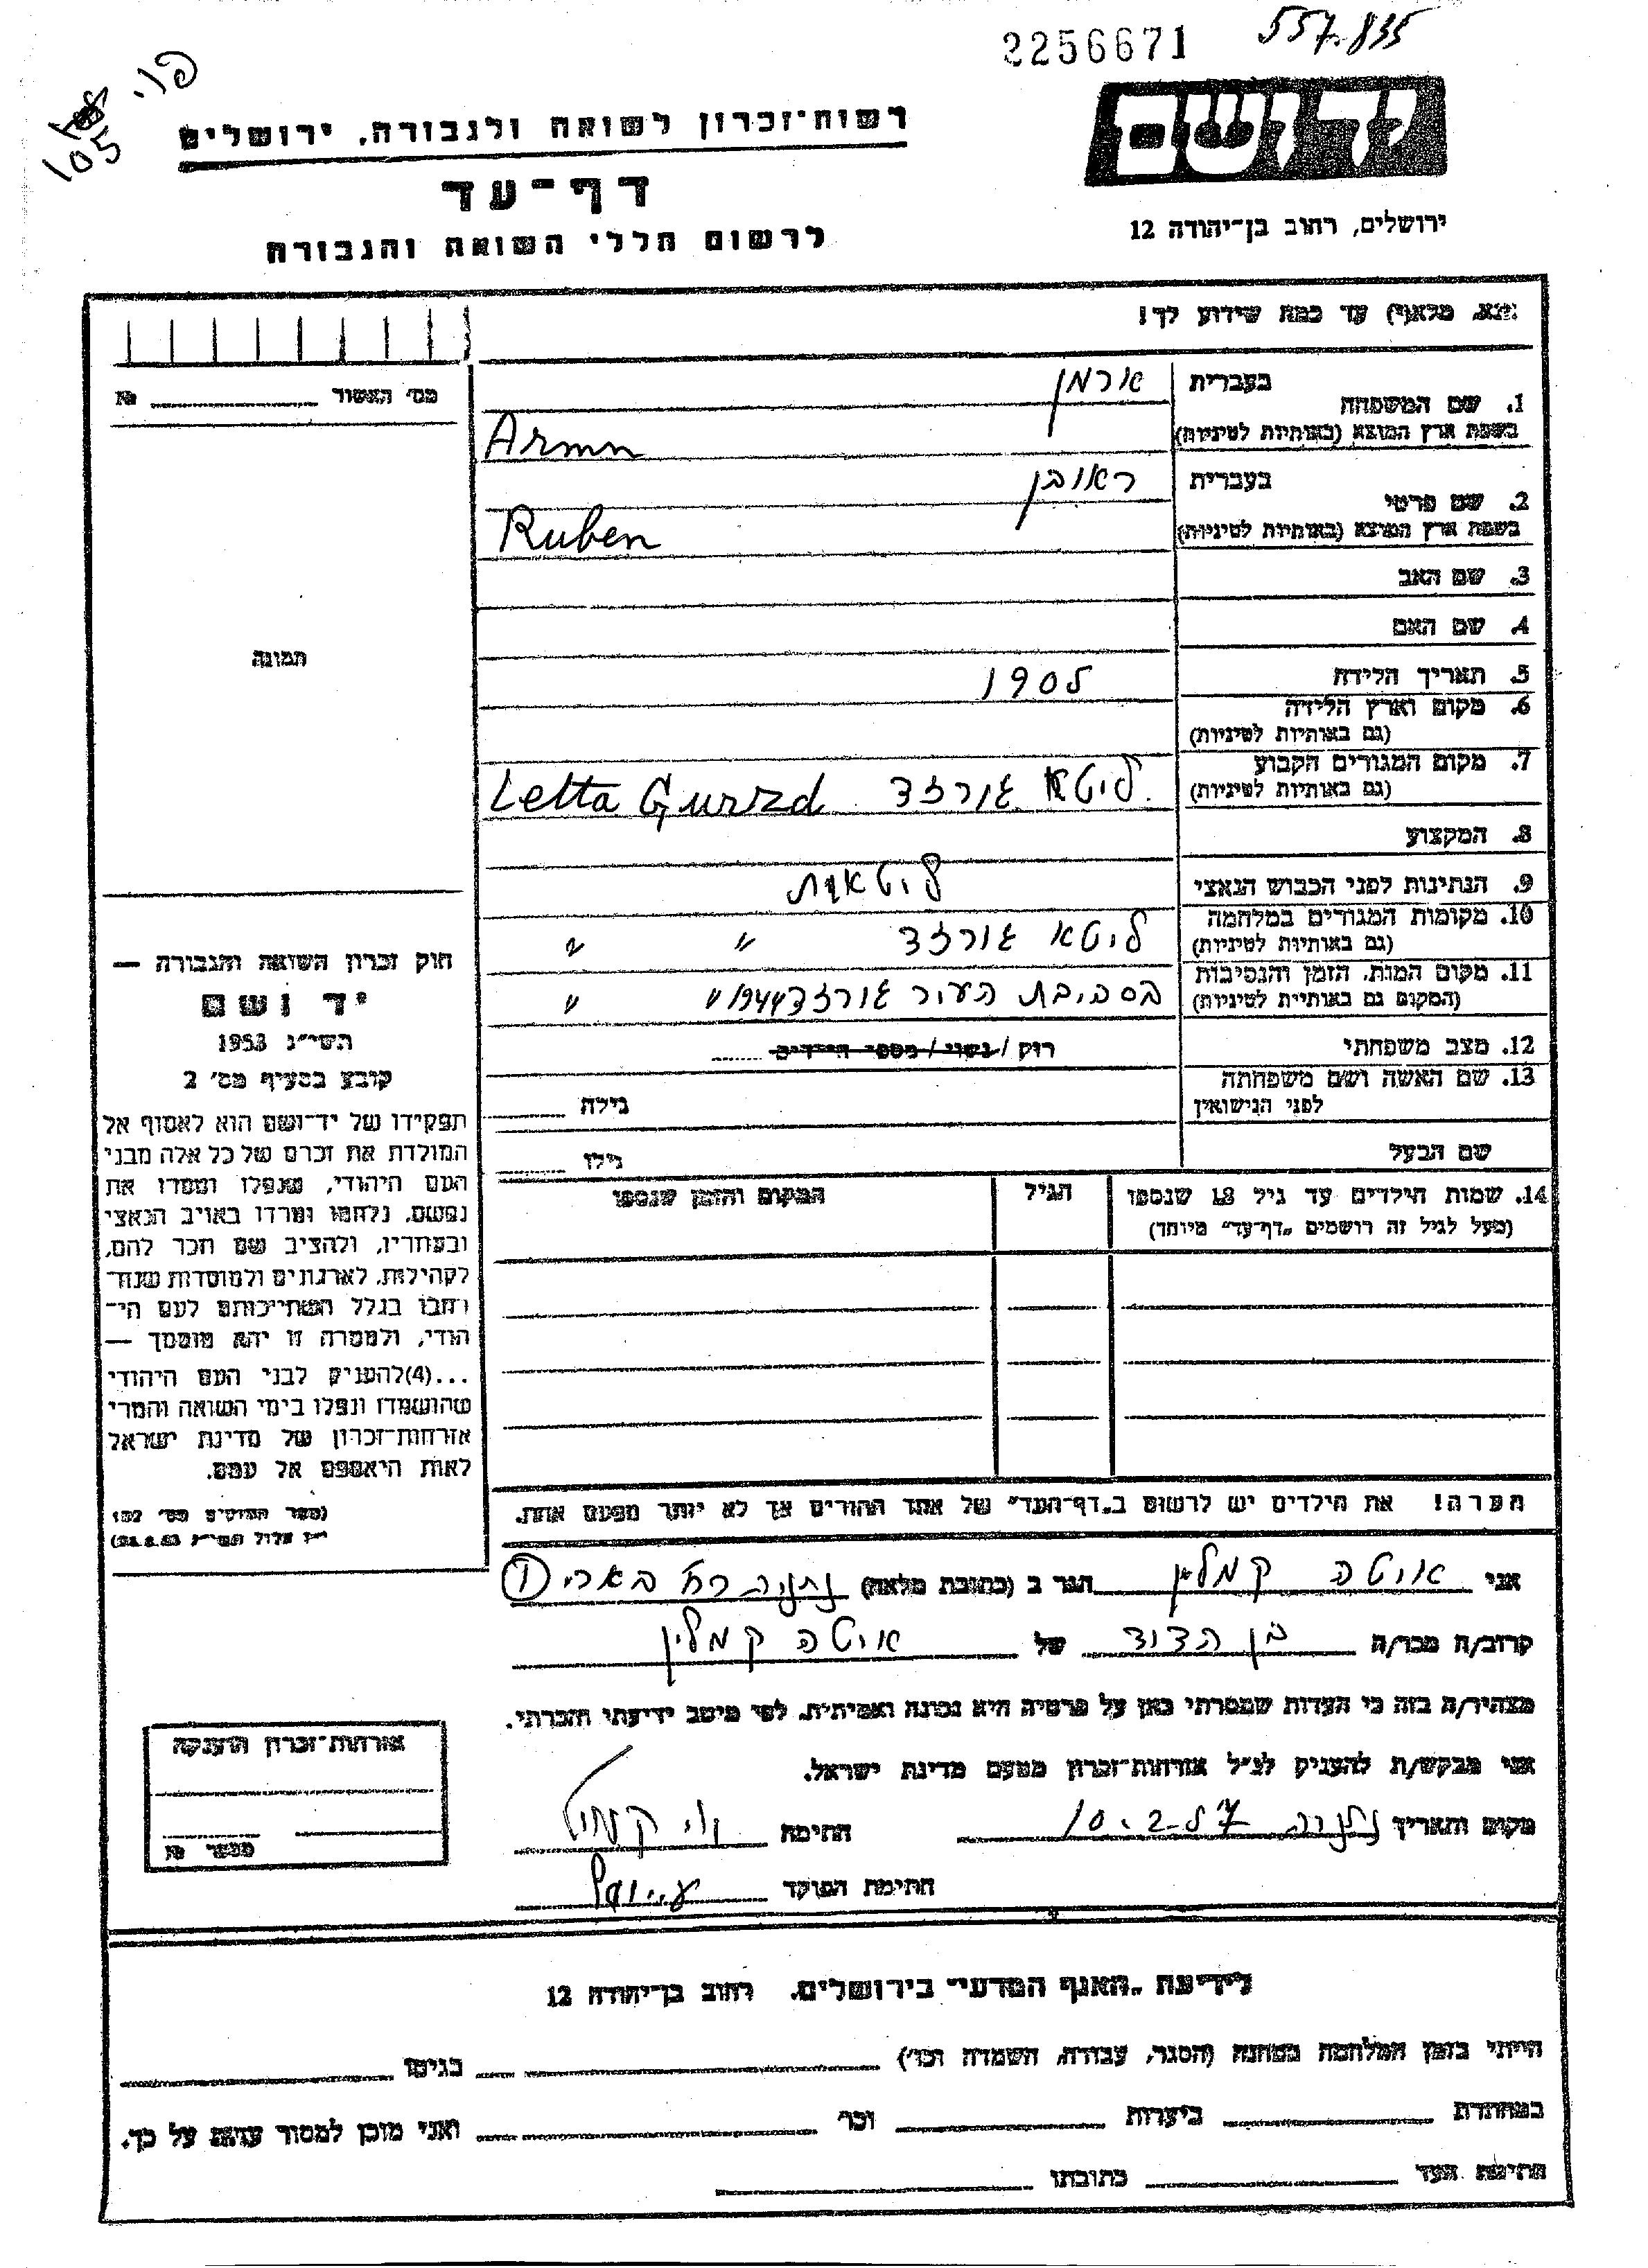 2256671 557.835
105
יד ושם
רשות־זכרון לשואה ולגבורה, ירושלים
דף־עד
לרשום חללי השואה והגבורה
ירושלים, רחוב בן־יהודה 12
נא, מלא(י) עד כמה שידוע לך!
מס' האשור № ________
תמונה
1. שם המשפחה
בעברית ארמן
בשפת ארץ המוצא (באותיות לטיניות) Armn
2. שם פרטי
בעברית ראובן
בשפת ארץ המוצא (באותיות לטיניות) Ruben
3. שם האב
4. שם האם
5. תאריך הלידה 1905
6. מקום וארץ הלידה
(גם באותיות לטיניות)
7. מקום המגורים הקבוע ליטא גורזד Letta Gurzd
(גם באותיות לטיניות)
8. המקצוע
9. הנתינות לפני הכבוש הנאצי ליטאית
10. מקומות המגורים במלחמה ליטא גורזד " "
(גם באותיות לטיניות)
11. מקום המות, הזמן והנסיבות בסביבת העיר גורזד 1944 " "
(המקום גם באותיות לטיניות)
12. מצב משפחתי רווק / נשוי / מספר הילדים
13. שם האשה ושם משפחתה
לפני הנישואין גילה
שם הבעל גילו
14. שמות הילדים עד גיל 18 שנספו הגיל המקום והזמן שנספו
(מעל לגיל זה רושמים „דף־עד" מיוחד)
חוק זכרון השואה והגבורה —
יד ושם
תשי"ג 1953
קובע בסעיף מס' 2
תפקידו של יד־ושם הוא לאסוף אל
המולדת את זכרם של כל אלה מבני
העם היהודי, שנפלו ומסרו את
נפשם, נלחמו ומרדו באויב הנאצי
ובעוזריו, ולהציב שם וזכר להם,
לקהילות, לארגונים ולמוסדות שנח־
רבו בגלל השתייכותם לעם הי־
הודי, ולמטרה זו יהא מוסמך —
...(4)להעניק לבני העם היהודי
שהושמדו ונפלו בימי השואה והמרי
אזרחות־זכרון של מדינת ישראל
לאות היאספם אל עמם.
(ספר החוקים מס' 132
י"ז אלול תשי"ג 28.8.53)
הערה! את הילדים יש לרשום ב„דף־העד" של אחד ההורים אך לא יותר מפעם אחת.
אני איטה קמלין הגר ב (כתובת מלאה) נתניה רח בארי 1
קרוב/ה מכר/ה בן הדוד של איטה קמלין
מצהיר/ה בזה כי העדות שמסרתי כאן על פרטיה היא נכונה ואמיתית, לפי מיטב ידיעתי והכרתי.
אני מבקש/ת להעניק לנ"ל אזרחות־זכרון מטעם מדינת ישראל.
מקום ותאריך נתניה 10.2.57 חתימה
חתימת הפוקד
אזרחות־זכרון הוענקה
מספר №
לידיעת „האגף המדעי" בירושלים, רחוב בן־יהודה 12
הייתי בזמן המלחמה במחנה (הסגר, עבודה, השמדה וכו') ________ בגיטו ________
במחתרת ________ ביערות ________ וכו' ________ ואני מוכן למסור עדות על כך.
חתימת העד ________ כתובתו ________